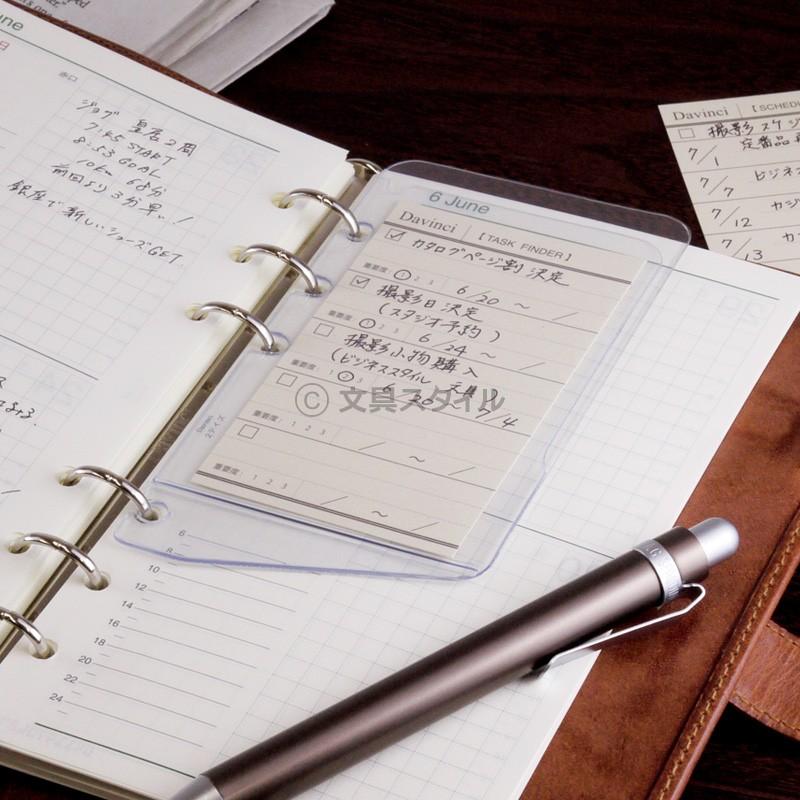 une
日
赤口
ジョグ 皇居2周
7:45 START
8:53 GOAL
10km 68分
前回より3分早い!
銀座で新しいシューズGET.
6 June
Davinci 【TASK FINDER】
カタログページ割 決定
重要度: ① 2 3 6/20 ～ /
撮影日 決定
(スタジオ予約)
重要度: ① 2 3 6/24 ～ /
撮影小物購入
(ビジネススタイル 文具)
重要度: 1 ② 3 6/20 ～ 7/4
重要度: 1 2 3 / ～ /
重要度: 1 2 3 / ～ /
Davinci
© 文具スタイル
6
8
10
12
14
16
18
20
22
24
Davinci 【SCHED
撮影スケジ
7/1 定番品
7/7 ビジネ
7/12 カジ
7/13 カ